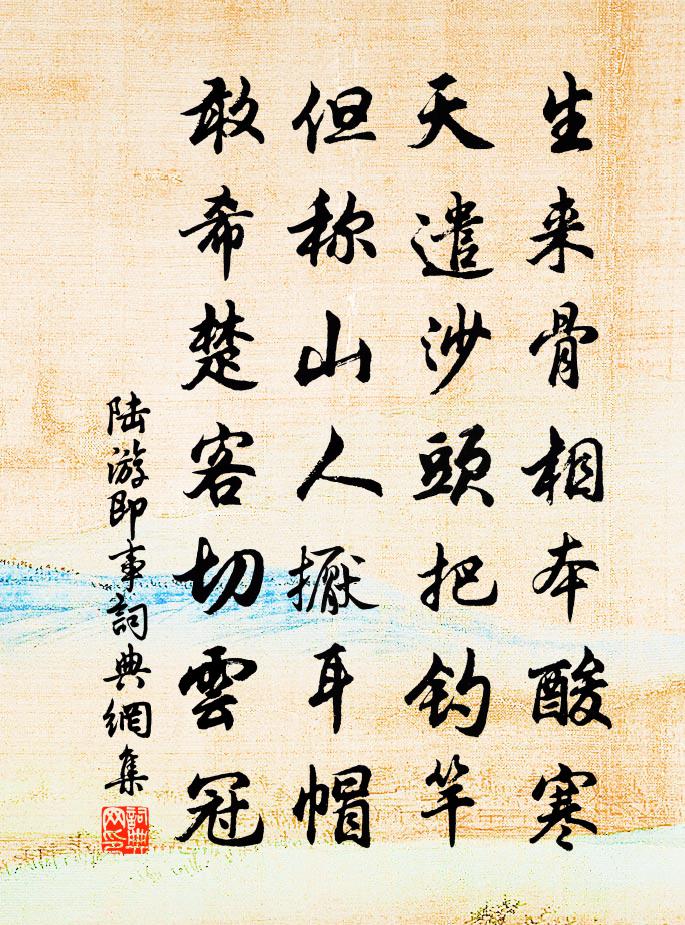 生来骨相本酸寒
天遣沙頭把钓竿
但称山人擫耳帽
敢希楚客切雲冠
陆游即事詞典網集
詞典网印